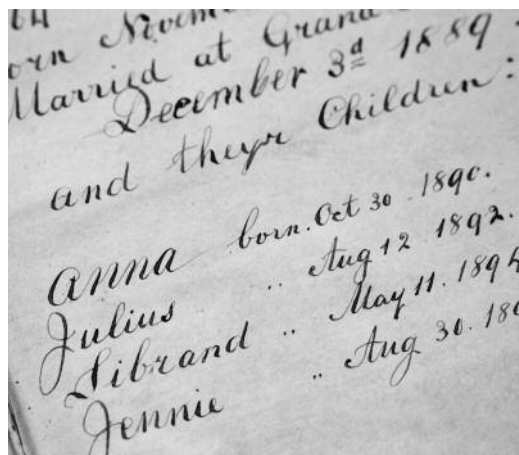 64
orn Novem
Married at Grand
December 3d 1889.
and theyr Children:
Anna born. Oct 30. 1890.
Julius " Aug 12. 1892.
Sibrand " May 11. 1894
Jennie " Aug 30. 18